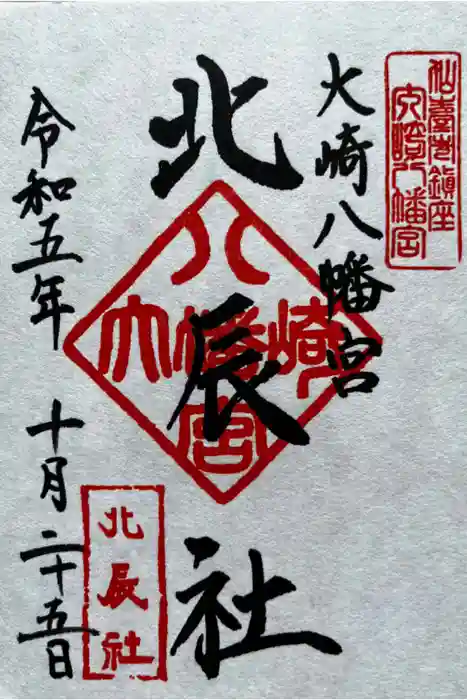 仙臺總鎮座
大崎八幡宮
大崎八幡宮
北辰社
八幡宮
大
崎
北辰社
令和五年 十月二十五日